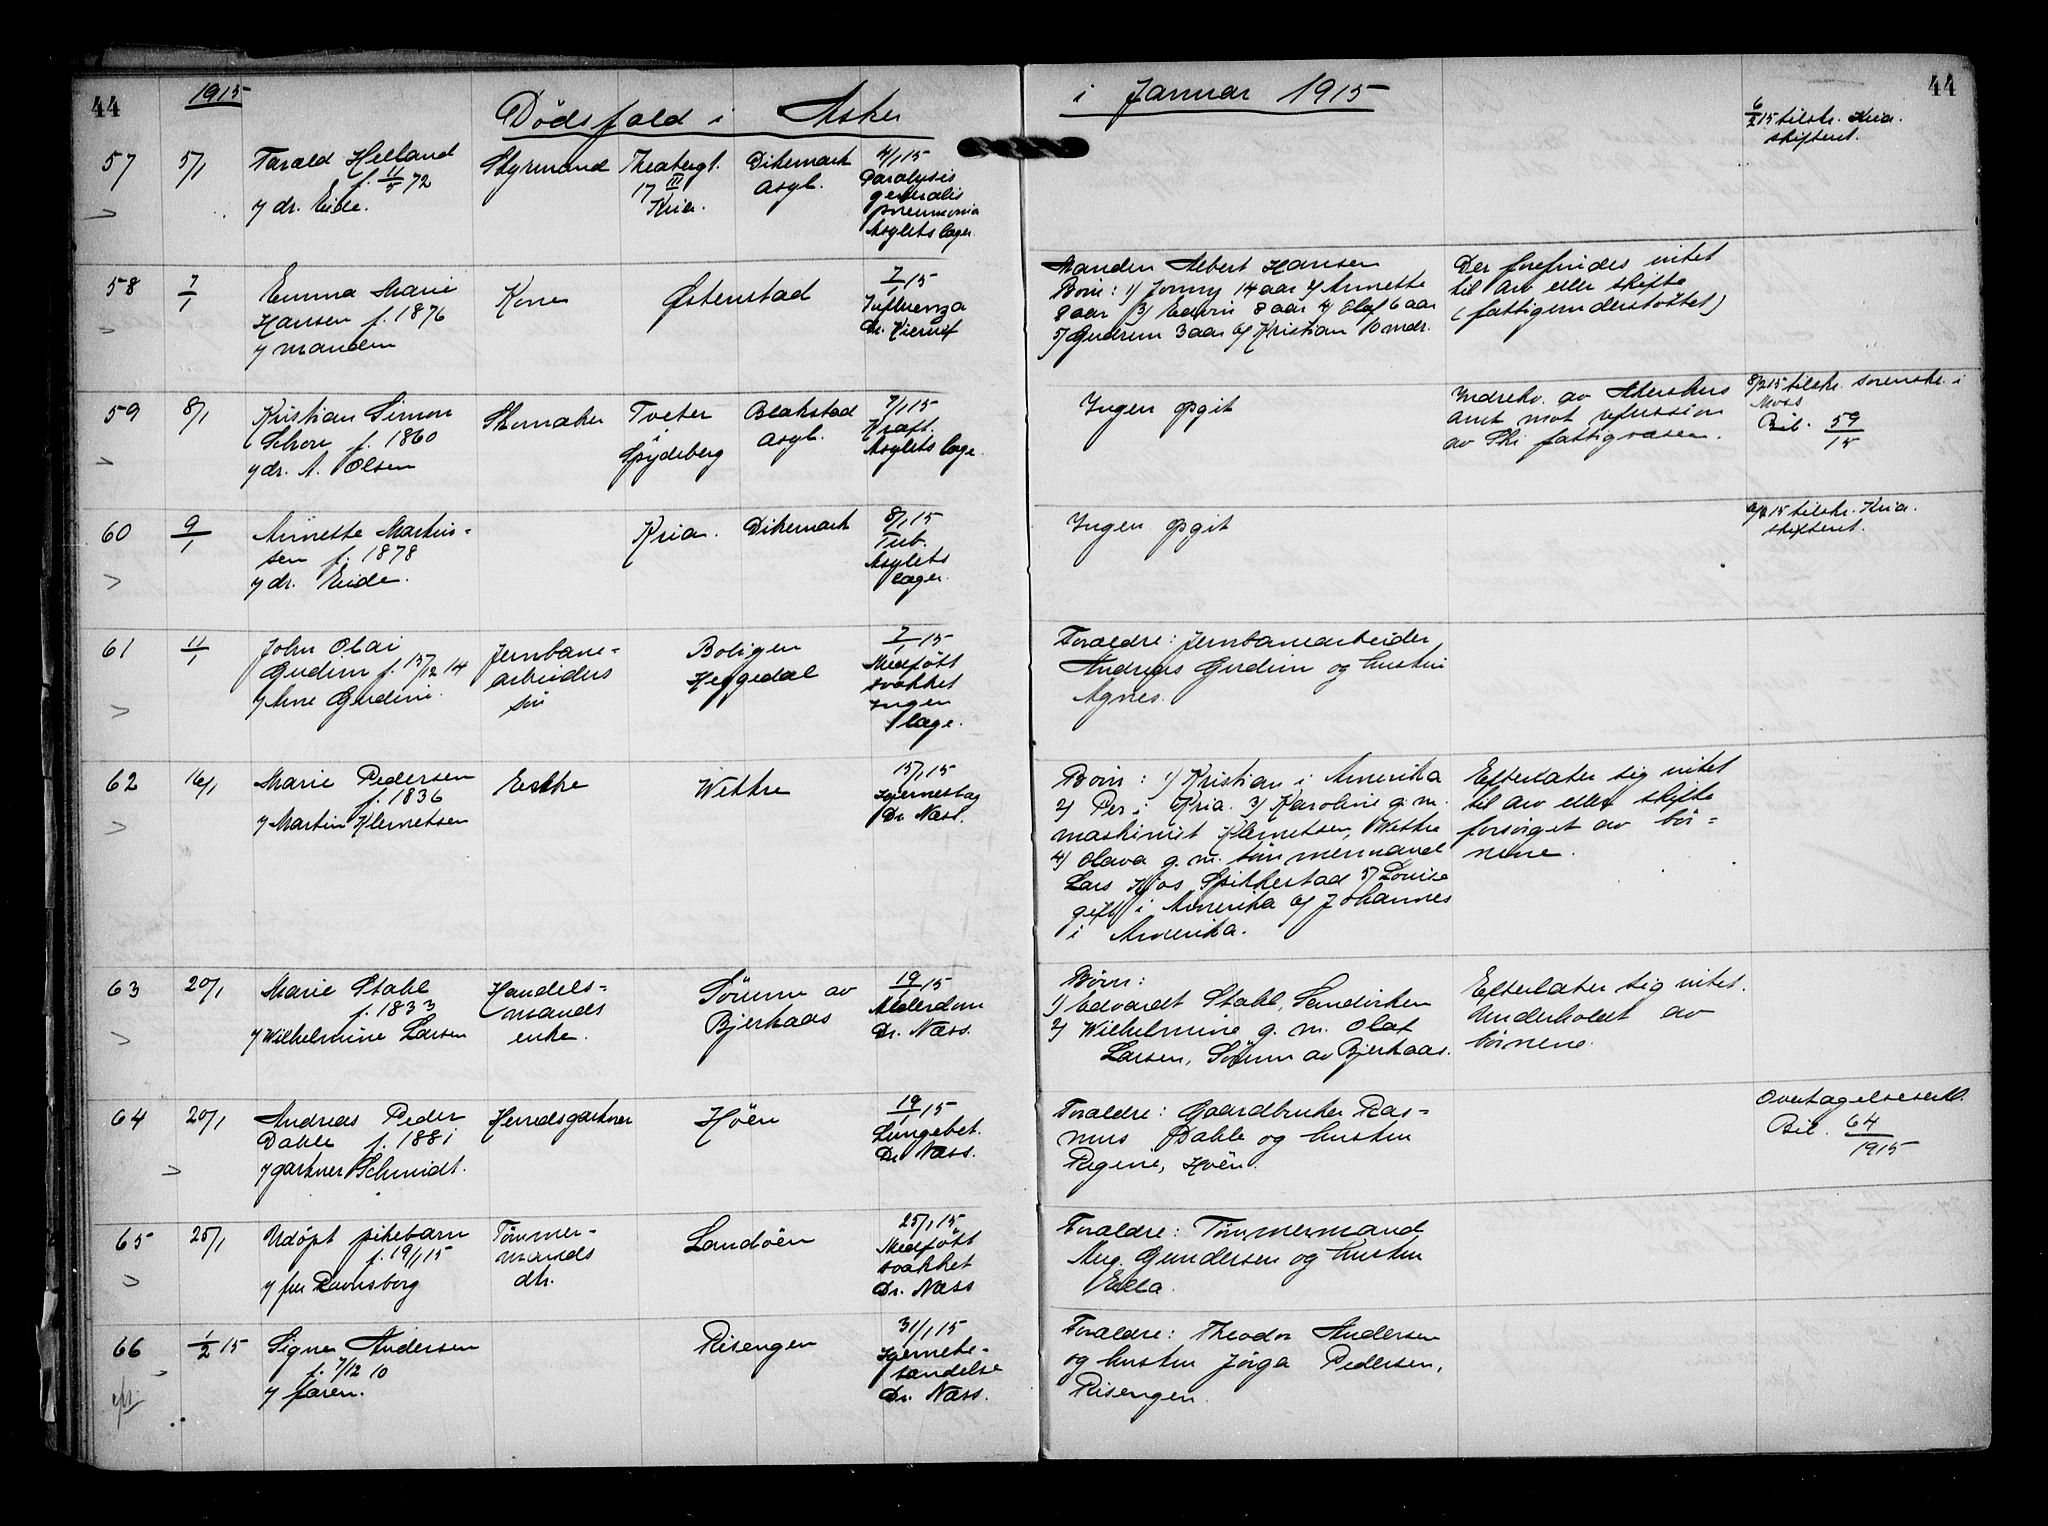 44
1915
Dödsfald i Asker
i Januar 1915
44
6/2 15 tilskr. Kria.
skifteret.
57
5/1
Tarald Helland
f. 11/5 72
v/ dr. Eide.
Styrmand
Theabergt.
17 III
Kria.
Dikemark
asyl.
4/1 15
Paralysis
generalis
pneumonia
Asylets læge.
58
7/1
Emma Marie
Hansen f. 1876
v/ manden
Kone
Østenstad
7/1 15
Influenza
Dr. Kierulf
Manden Albert Hansen
Börn: 1) Jonny 14 aar 2) Annette
8 aar 3) Edvin 8 aar 4) Olaf 6 aar
5) Gudrun 3 aar 6) Kristian 10 mdr.
Der forefindes intet
til arv eller skifte
(fattigunderstöttet)
59
8/1
Kristian Simon
f. 1860
v/ dr. A. Olsen
Skomaker
Tveter
Spydeberg
Blakstad
asyl.
7/1 15
Kræft.
Asylets læge.
Ingen opgit
Indrekv. av Akershus
amt mot refusion
av Ski fattigvæsen.
8/2 15 tilskr. sorenskr. i
Moss
Bil. 59/15
60
9/1
Annette Martin-
sen f. 1878
v/ dr. Eide.
Kria.
Dikemark
8/1 15
Tub.
Asylets
læge.
Ingen opgit
15 tilskr. Kria.
skifteret.
61
11/1
John Olai
Gudim f. 15/12 14
v/ Arne Gudim.
Jernbane-
arbeiders
sön
Boligen
Heggedal
7/1 15
Medfött
svakhet
Ingen
læge.
Foraldre: Jernbanearbeider
Andreas Gudim og hustru
Agnes.
62
16/1
Marie Pedersen
f. 1836
v/ Martin Klemetsen
Enke
Wettre
15/1 15
Hjerneslag
Dr. Næss.
Börn: 1) Kristian i Amerika
2) Per i Kria. 3) Karoline g. m.
maskinist Klemetsen, Wettre
4) Olava g. m. tömmermand
Lars Kjos Spikkestad 5) Louise
gift i Amerika 6) Johannes
i Amerika.
Efterlater sig intet
til arv eller skifte
forsörget av bör-
nene.
63
20/1
Marie Stahl
f. 1833
v/ Wilhelmine Larsen
Handels-
mands
enke.
Sörum av
Bjerkaas
19/1 15
Alderdom
Dr. Næss.
Börn:
1) Edvardt Stahl, Sandviken
2) Wilhelmine g. m. Olaf
Larsen, Sörum av Bjerkaas.
Efterlater sig intet.
Underholdt av
börnene.
64
20/1
Andreas Peder
Dahle f. 1881
v/ gartner Schmidt.
Herredsgartner
Höen
19/1 15
Lungebet.
Dr. Næss.
Foraldre: Gaardbruker Ras-
mus Dahle og hustru
Regine, Höen.
Overtagelseserkl.
Bil. 64/1915
65
25/1
Udöpt pikebarn
f. 19/1 15
v/ fru Ravnsborg
Tömmer-
mands
dtr.
Landöen
25/1 15
Medfött
svakhet
Dr. Næss
Foraldre: Tömmermand
Aug. Gundersen og hustru
Ella.
66
1/2 15
Signe Andersen
f. 7/12 10
v/ faren.
Risengen
31/1 15
Hjernebe-
tændelse
Dr. Næss.
Foraldre: Theodor Andersen
og hustru Jörga Pedersen,
Risengen.